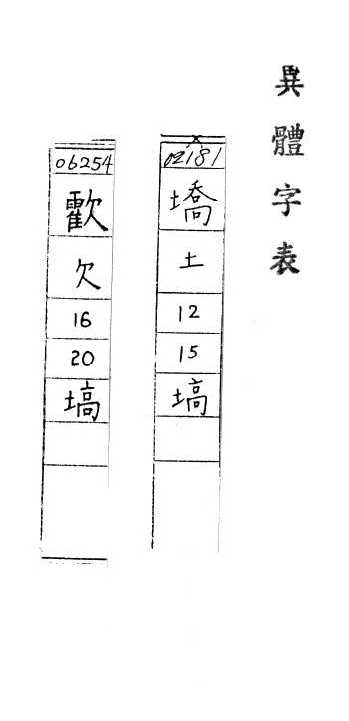 異體字表
02181
墧
土
12
15
塙
06254
欠
16
20
塙